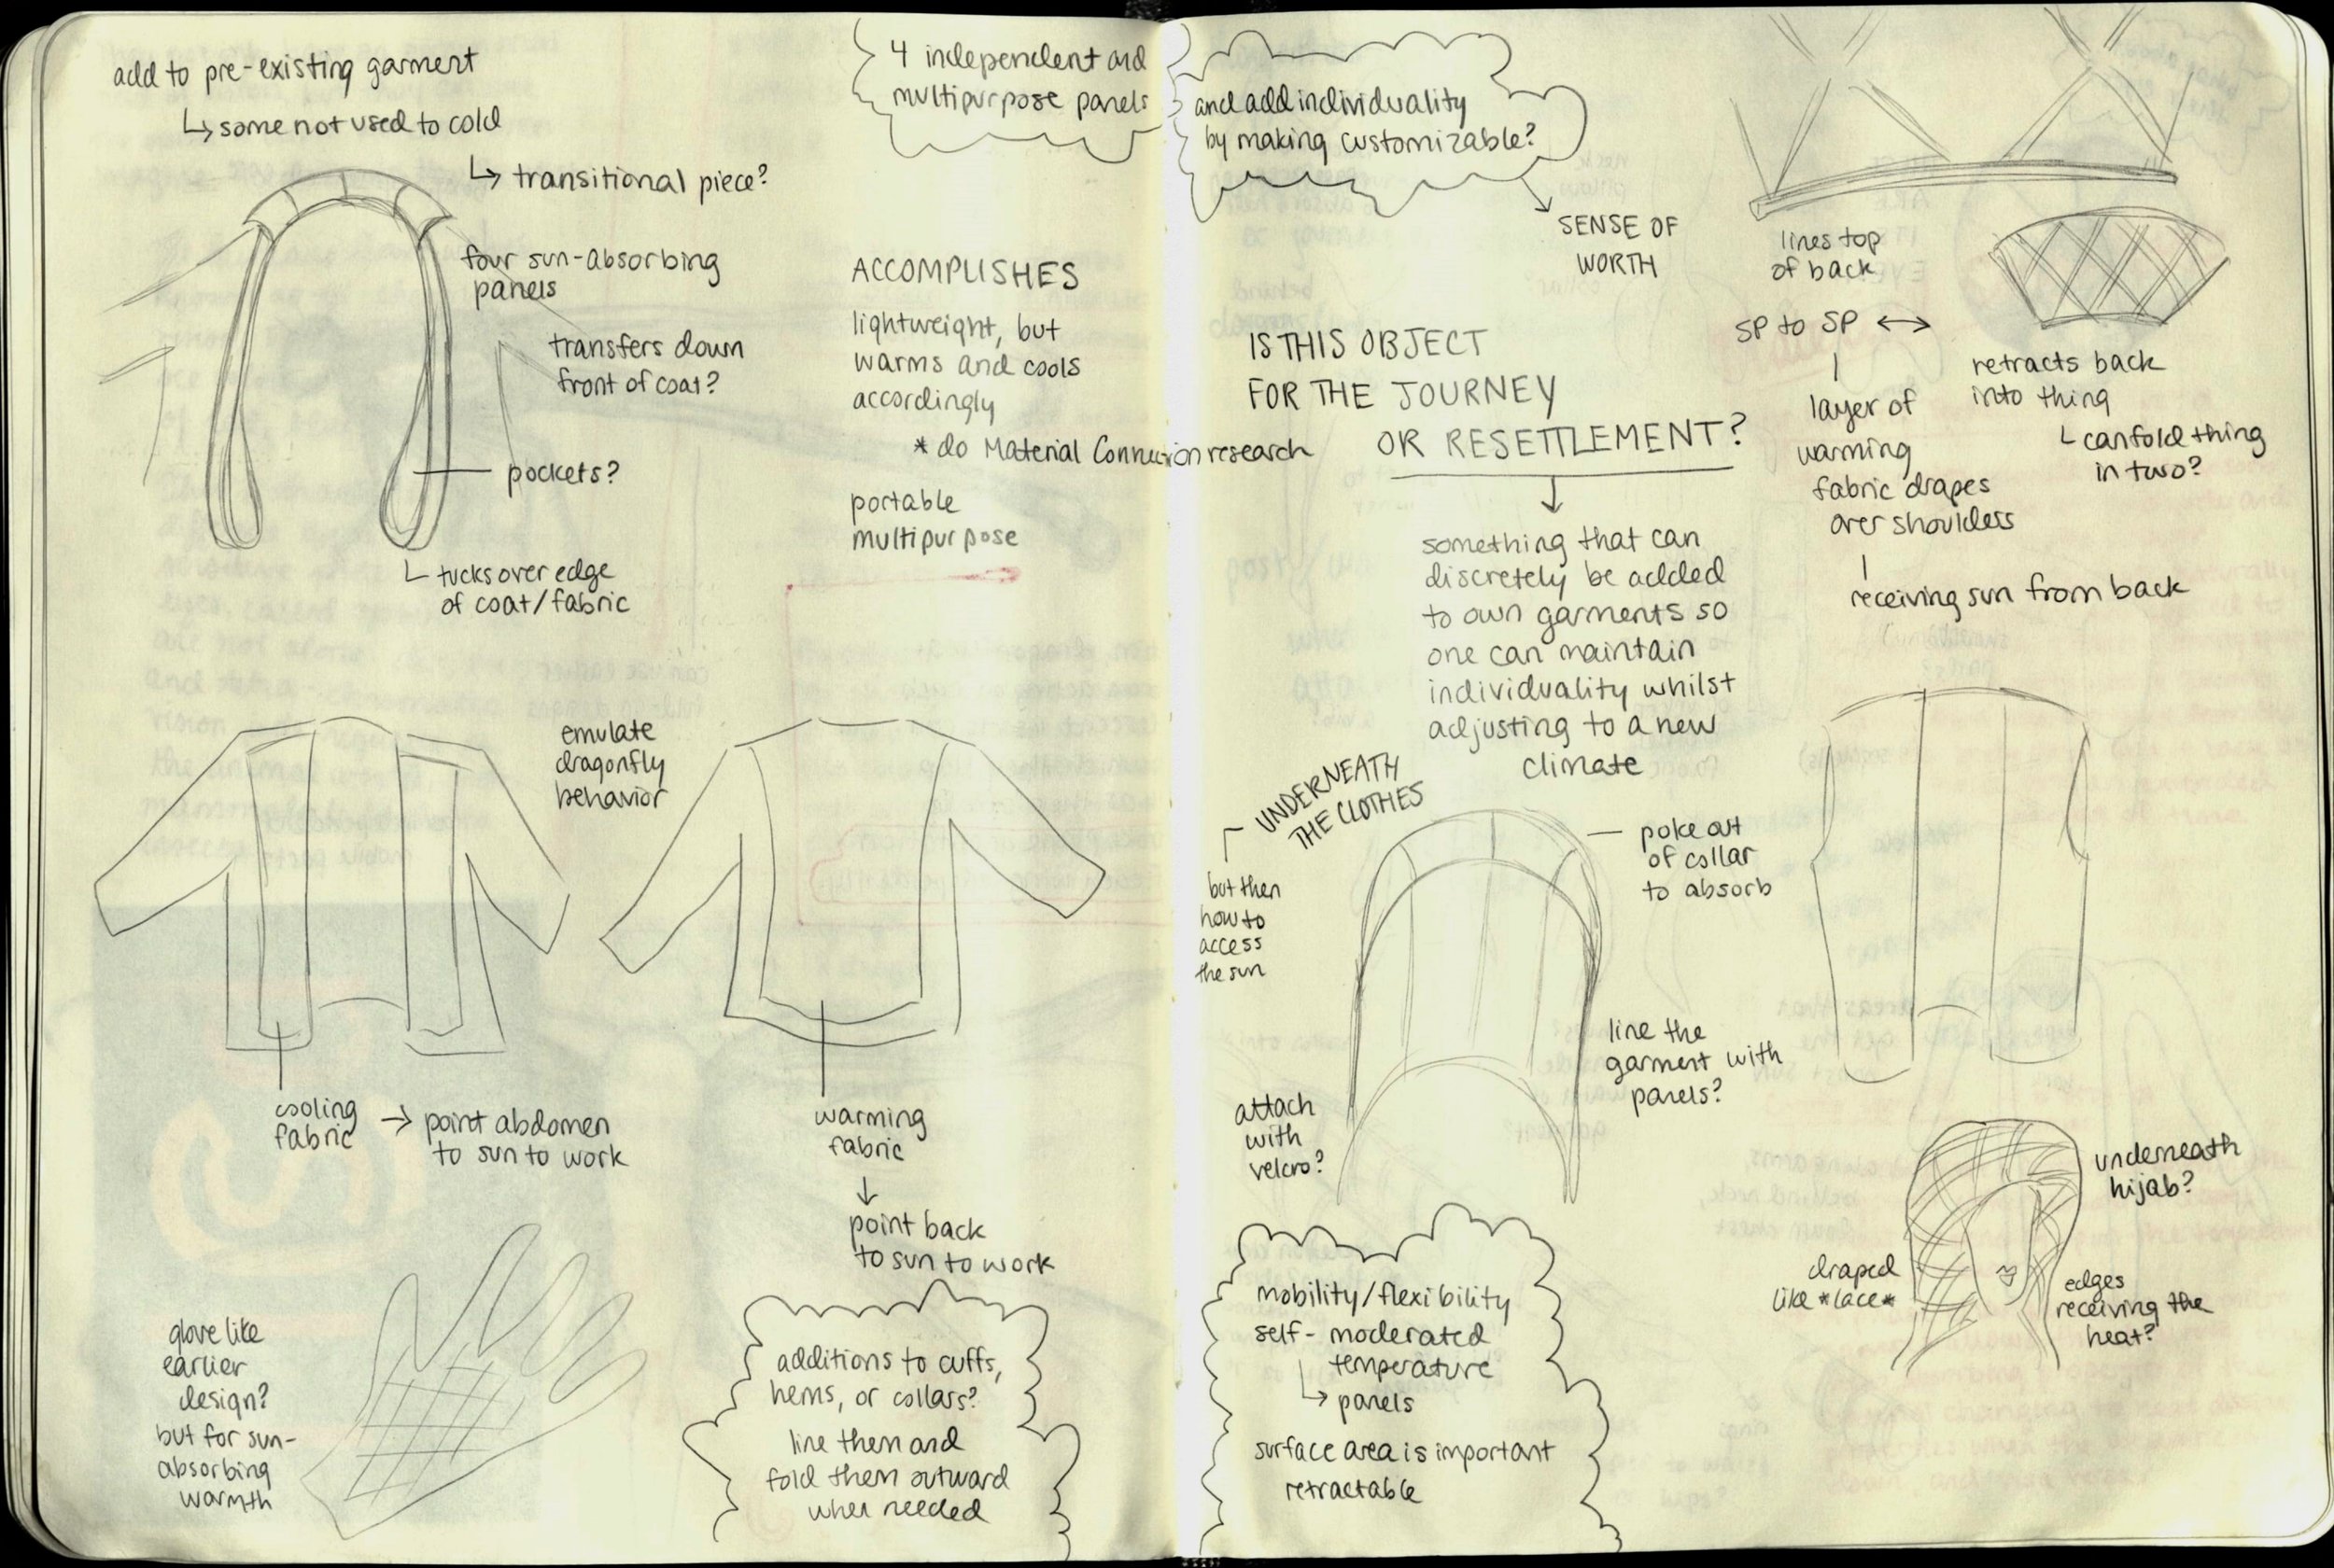 add to pre-existing garment
↳ some not used to cold
↳ transitional piece?
four sun-absorbing
panels
transfers down
front of coat?
pockets?
tucks over edge
of coat/fabric
4 independent and
multipurpose panels
ACCOMPLISHES
lightweight, but
warms and cools
accordingly
* do Material Connexion research
portable
multipurpose
emulate
dragonfly
behavior
cooling
fabric
→ point abdomen
to sun to work
warming
fabric
↓
point back
to sun to work
glove like
earlier
design?
but for sun-
absorbing
warmth
additions to cuffs,
hems, or collars?
line them and
fold them outward
when needed
and add individuality
by making customizable?
SENSE OF
WORTH
IS THIS OBJECT
FOR THE JOURNEY
OR RESETTLEMENT?
something that can
discretely be added
to own garments so
one can maintain
individuality whilst
adjusting to a new
climate
lines top
of back
SP to SP ↔
layer of
warming
fabric drapes
over shoulders
receiving sun from back
retracts back
into thing
can fold thing
in two?
UNDERNEATH
THE CLOTHES
but then
how to
access
the sun
poke out
of collar
to absorb
line the
garment with
panels?
attach
with
velcro?
mobility/flexibility
self-moderated
temperature
↳ panels
surface area is important
retractable
underneath
hijab?
draped
like *lace*
edges
receiving the
heat?